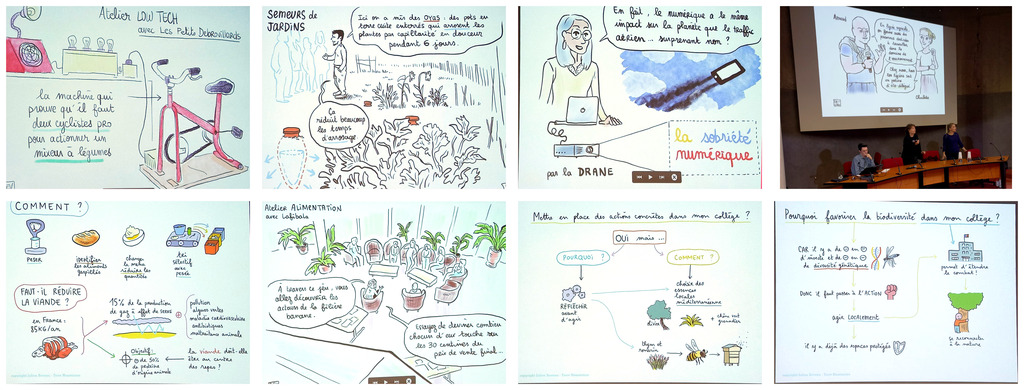 Atelier LOW TECH
avec Les Petits Débrouillards
la machine qui
prouve qu'il faut
deux cyclistes pro
pour actionner un
mixeur à légumes
SEMEURS de
JARDINS
Ici on a mis des Oyas : des pots en
terre cuite enterrés qui arrosent les
plantes par capillarité en douceur
pendant 6 jours.
ça
réduit beaucoup
les temps
d'arrosage
En fait, le numérique a le même
impact sur la planète que le trafic
aérien... surprenant non ?
la sobriété
numérique
par la DRANE
COMMENT ?
PESER
identifier
les aliments
gaspillés
changer
le menu
réduire les
quantités
tri
sélectif
avec
pesée
FAUT-IL RÉDUIRE
LA VIANDE ?
en France :
85KG/an
15% de la production
de gaz à effet de serre
Objectif :
de 50%
de protéine
d'origine animale
pollution
algues vertes
maladies cardiovasculaires
antibiotiques
maltraitance animale
la viande doit-elle
être au centre
des repas ?
Atelier ALIMENTATION
avec Lafibala
À travers ce jeu, vous
allez découvrir les
acteurs de la filière
banane.
Essayez de deviner combien
chacun d'eux touche sur
les 30 centimes du
prix de vente final...
Mettre en place des actions concrètes dans mon collège ?
OUI mais...
POURQUOI ?
COMMENT ?
RÉFLÉCHIR
avant
d'agir
choisir des
essences
locales
méditerranéennes
olivier
thym et
romarin
Pourquoi favoriser la biodiversité dans mon collège ?
CAR il y a de
d'insectes et de
diversité génétique
DONC il faut passer à l'ACTION
agir LOCALEMENT
il y a déjà des espaces protégés
permet d'étendre
le combat !
se reconnecter
à la nature